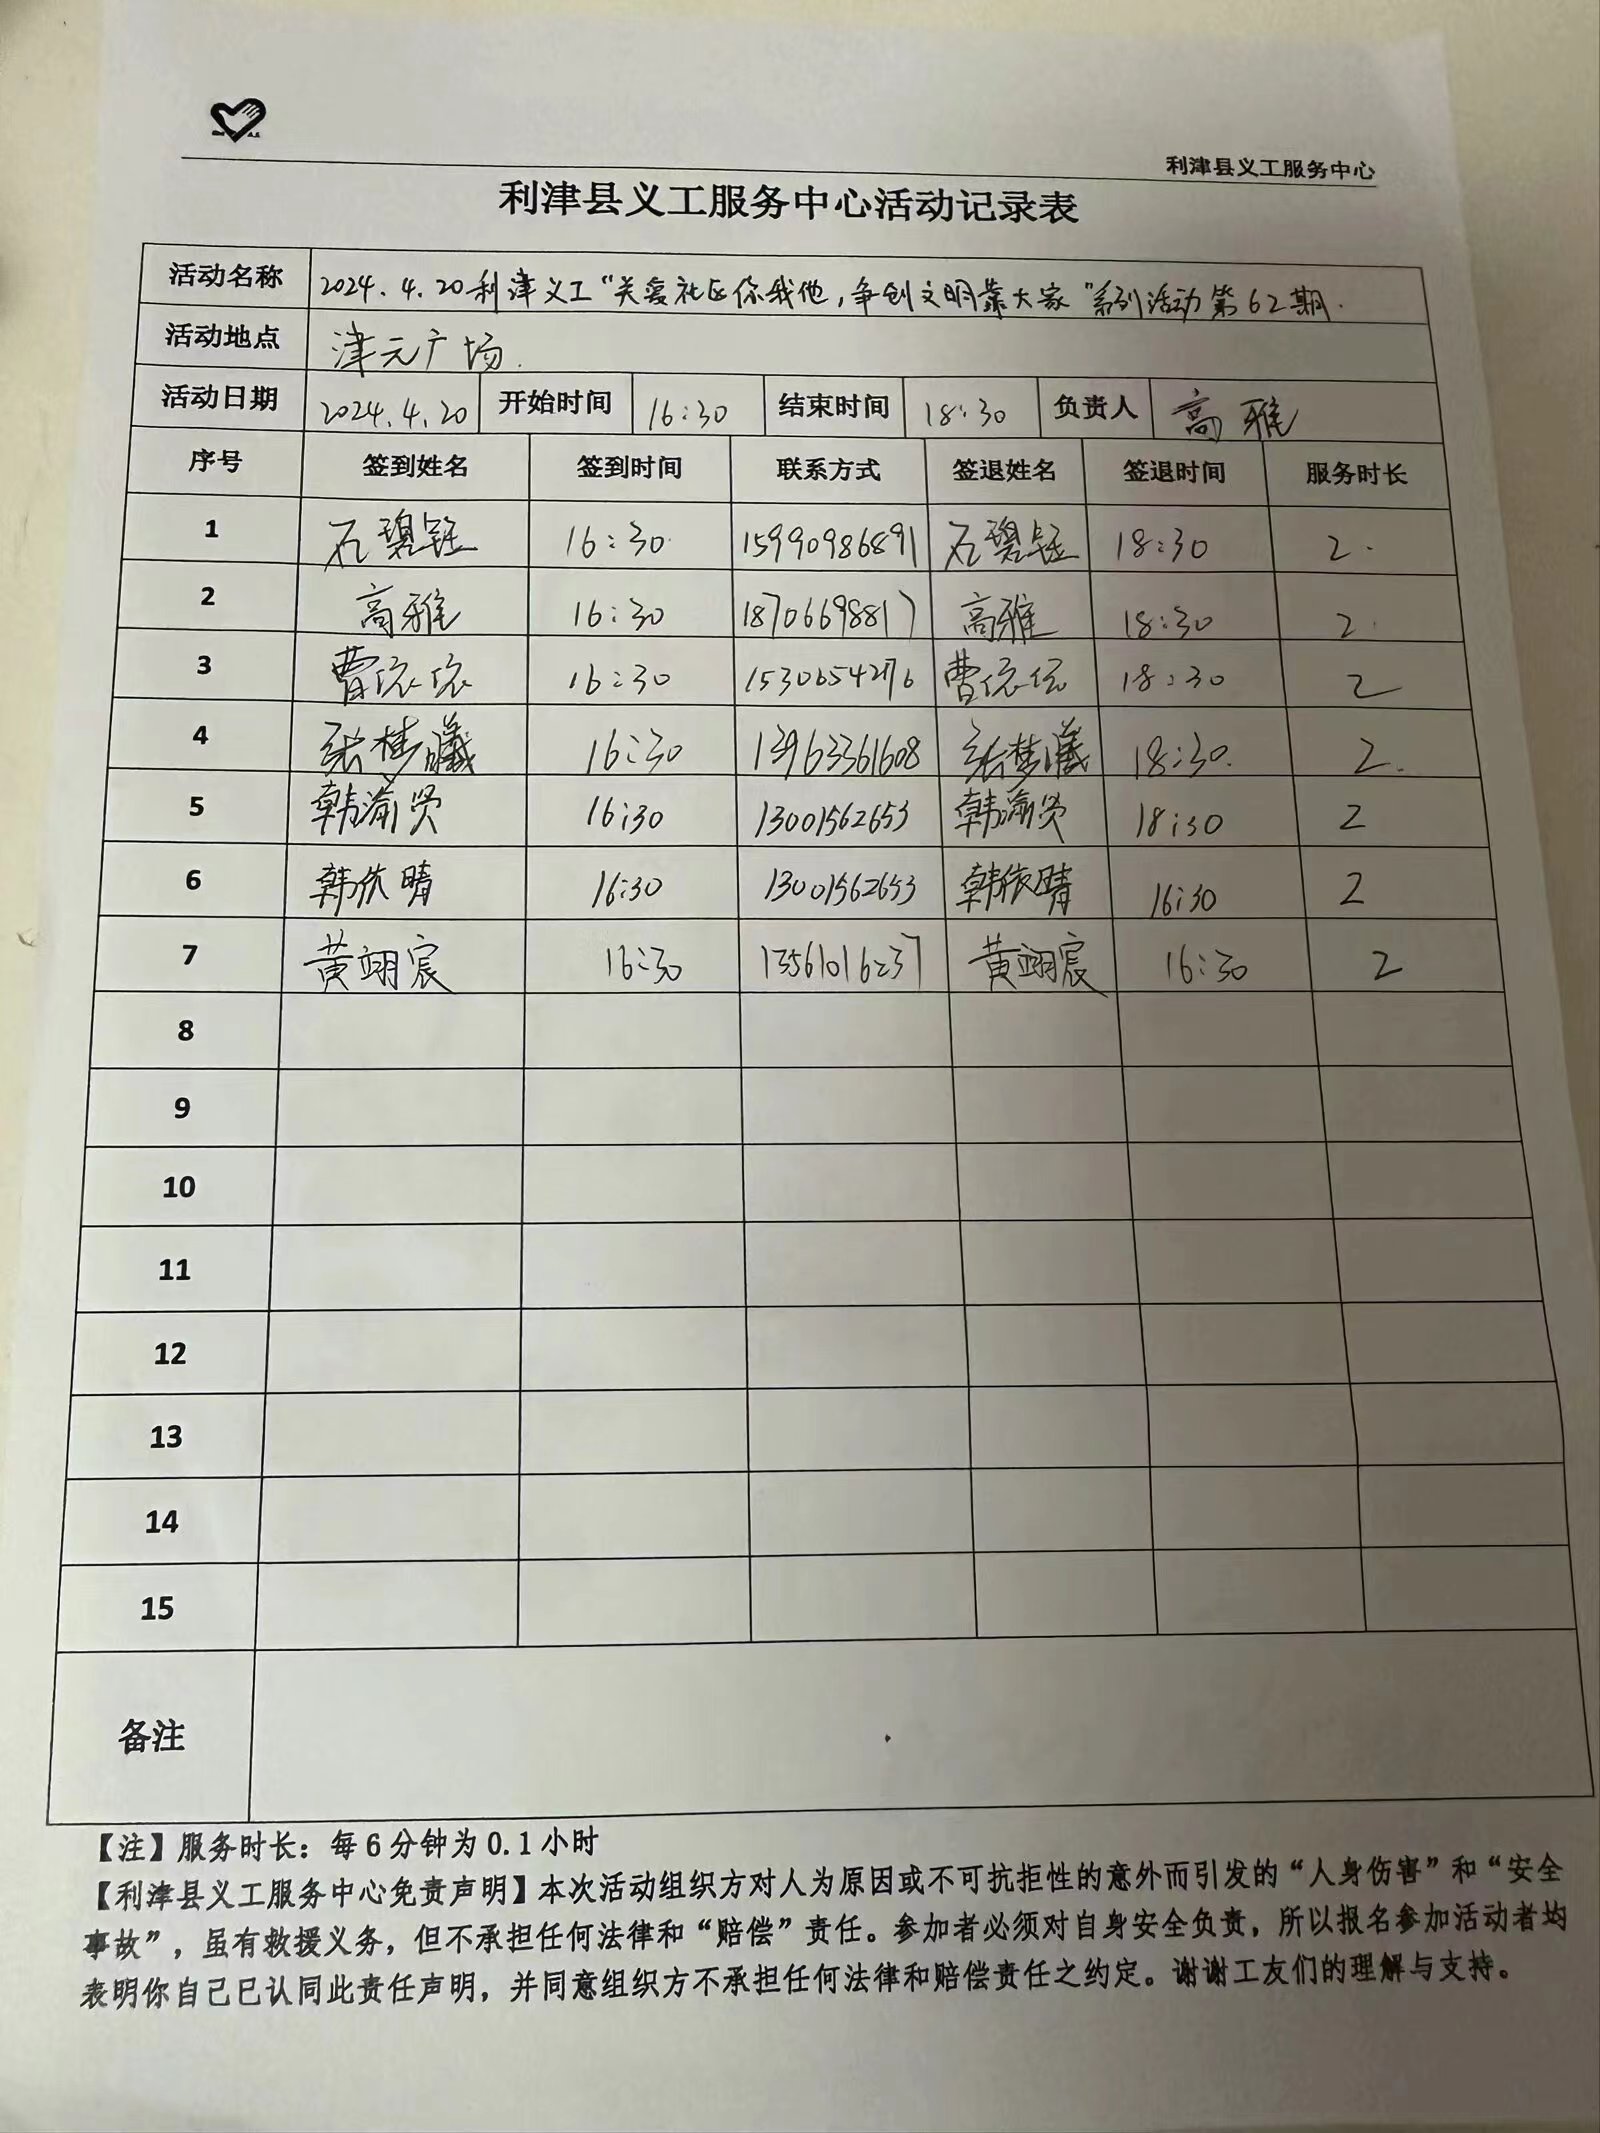 利津县义工服务中心
利津县义工服务中心活动记录表
活动名称 2024.4.20利津义工“关爱社区你我他，争创文明靠大家”系列活动第62期.
活动地点 津元广场.
活动日期 2024.4.20 开始时间 16:30 结束时间 18:30 负责人 高雅
序号 签到姓名 签到时间 联系方式 签退姓名 签退时间 服务时长
1 石碧钰 16:30 15990986891 石碧钰 18:30 2.
2 高雅 16:30 18706698817 高雅 18:30 2.
3 曹依依 16:30 15306542776 曹依依 18:30 2
4 张梦曦 16:30 13963361608 张梦曦 18:30. 2.
5 韩渝贤 16:30 13001562653 韩渝贤 18:30 2
6 韩依晴 16:30 13001562653 韩依晴 16:30 2
7 黄翊宸 16:30 13561016237 黄翊宸 16:30 2
8
9
10
11
12
13
14
15
备注
【注】服务时长：每6分钟为0.1小时
【利津县义工服务中心免责声明】本次活动组织方对人为原因或不可抗拒性的意外而引发的“人身伤害”和“安全
事故”，虽有救援义务，但不承担任何法律和“赔偿”责任。参加者必须对自身安全负责，所以报名参加活动者均
表明你自己已认同此责任声明，并同意组织方不承担任何法律和赔偿责任之约定。谢谢工友们的理解与支持。